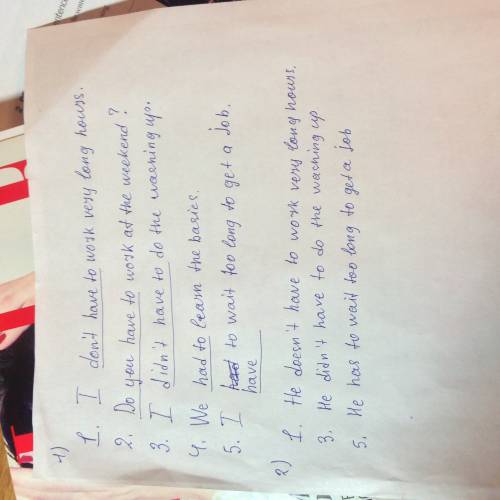 1)
1. I don't have to work very long hours.
2. Do you have to work at the weekend?
3. I didn't have to do the washing up.
4. We had to learn the basics.
5. I to wait too long to get a job.
have
2)
1. He doesn't have to work very long hours.
3. He didn't have to do the washing up
5. He has to wait too long to get a job